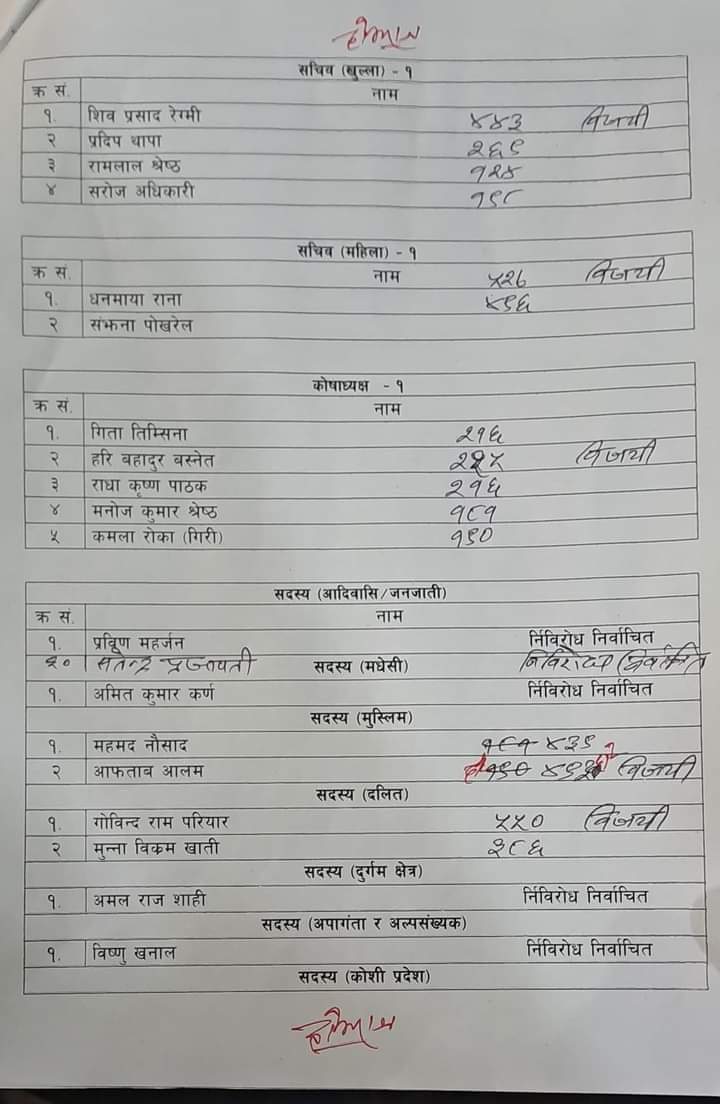 सचिव (खुल्ला) - १
क्र सं. नाम
१. शिव प्रसाद रेग्मी ४४३ विजयी
२ प्रदिप थापा २६९
३ रामलाल श्रेष्ठ १२४
४ सरोज अधिकारी १९८
सचिव (महिला) - १
क्र सं. नाम
५२६ विजयी
१. धनमाया राना ४९६
२ संझना पोखरेल
कोषाध्यक्ष - १
क्र सं. नाम
१. गिता तिम्सिना २१६
२ हरि बहादुर बस्नेत विजयी
३ राधा कृष्ण पाठक २१६
४ मनोज कुमार श्रेष्ठ १८१
५ कमला रोका (गिरी) १९०
सदस्य (आदिवासि/जनजाती)
क्र सं. नाम
१. प्रविण महर्जन र्निविरोध निर्वाचित
सदस्य (मधेसी)
१. अमित कुमार कर्ण र्निविरोध निर्वाचित
सदस्य (मुस्लिम)
१. महमद नौसाद ४३९
२ आफताब आलम विजयी
सदस्य (दलित)
१. गोविन्द राम परियार ५५० विजयी
२ मुन्ना विक्रम खाती ३८६
सदस्य (दुर्गम क्षेत्र)
१. अमल राज शाही र्निविरोध निर्वाचित
सदस्य (अपागंता र अल्पसंख्यक)
१. विष्णु खनाल र्निविरोध निर्वाचित
सदस्य (कोशी प्रदेश)